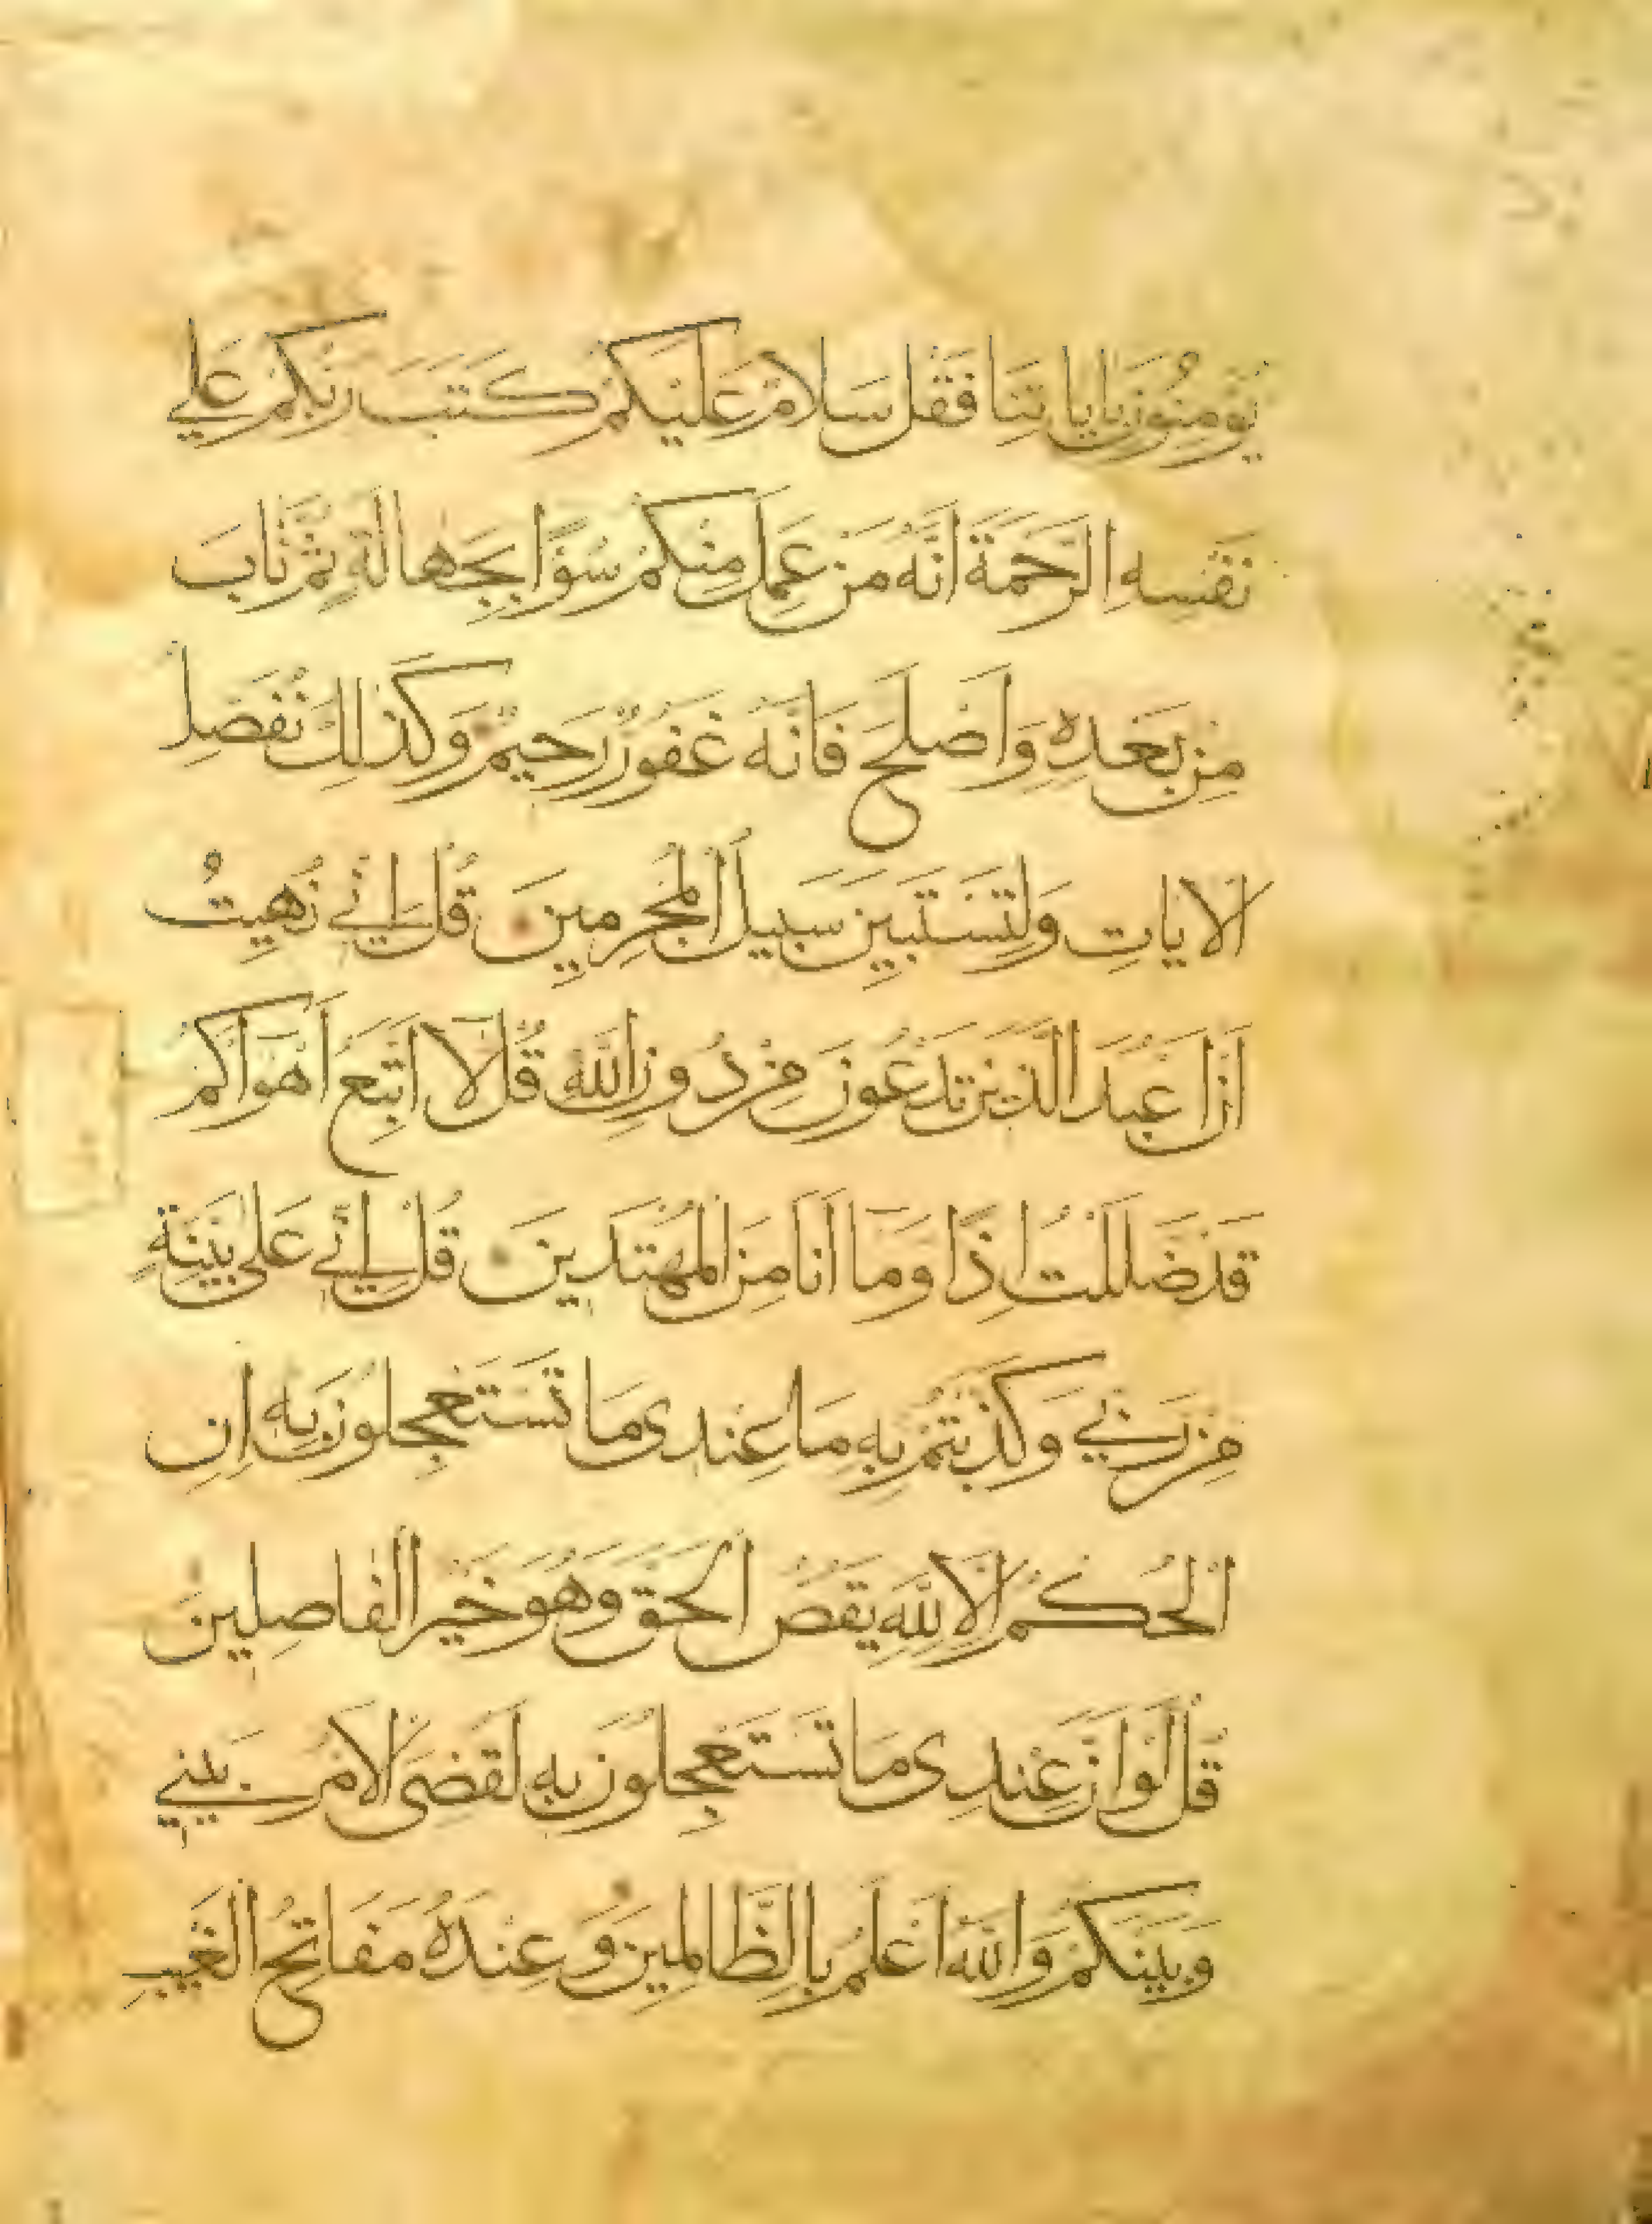 يُؤمِنُونَ بِاٰيَاتِنَا فَقُلْ سَلَامٌ عَلَيْكُمْ كَتَبَ رَبُّكُمْ عَلَى
نَفْسِهِ الرَّحْمَةَ اَنَّهُ مَنْ عَمِلَ مِنْكُمْ سُوًا بِجَهَالَةٍ ثُمَّ تَابَ
مِنْ بَعْدِهِ وَاَصْلَحَ فَاَنَّهُ غَفُورٌ رَحِيمٌ وَكَذَلِكَ نُفَصِّلُ
الْاٰيَاتِ وَلِتَسْتَبِينَ سَبِيلَ الْمُجْرِمِينَ قُلْ اِنِّي نُهِيتُ
اَنْ اَعْبُدَ الَّذِينَ تَدْعُونَ مِنْ دُونِ اللَّهِ قُلْ لَا اَتَّبِعُ اَهْوَاكُمْ
قَدْ ضَلَلْتُ اِذًا وَمَا اَنَا مِنَ الْمُهْتَدِينَ قُلْ اِنِّي عَلَى بَيِّنَةٍ
مِنْ رَبِّي وَكَذَّبْتُمْ بِهِ مَا عِنْدِي مَا تَسْتَعْجِلُونَ بِهِ اِنِ
الْحُكْمُ اِلَّا لِلَّهِ يَقُصُّ الْحَقَّ وَهُوَ خَيْرُ الْفَاصِلِينَ
قُلْ لَوْ اَنَّ عِنْدِي مَا تَسْتَعْجِلُونَ بِهِ لَقُضِيَ الْاَمْرُ بَيْنِي
وَبَيْنَكُمْ وَاللَّهُ اَعْلَمُ بِالظَّالِمِينَ وَعِنْدَهُ مَفَاتِحُ الْغَيْبِ